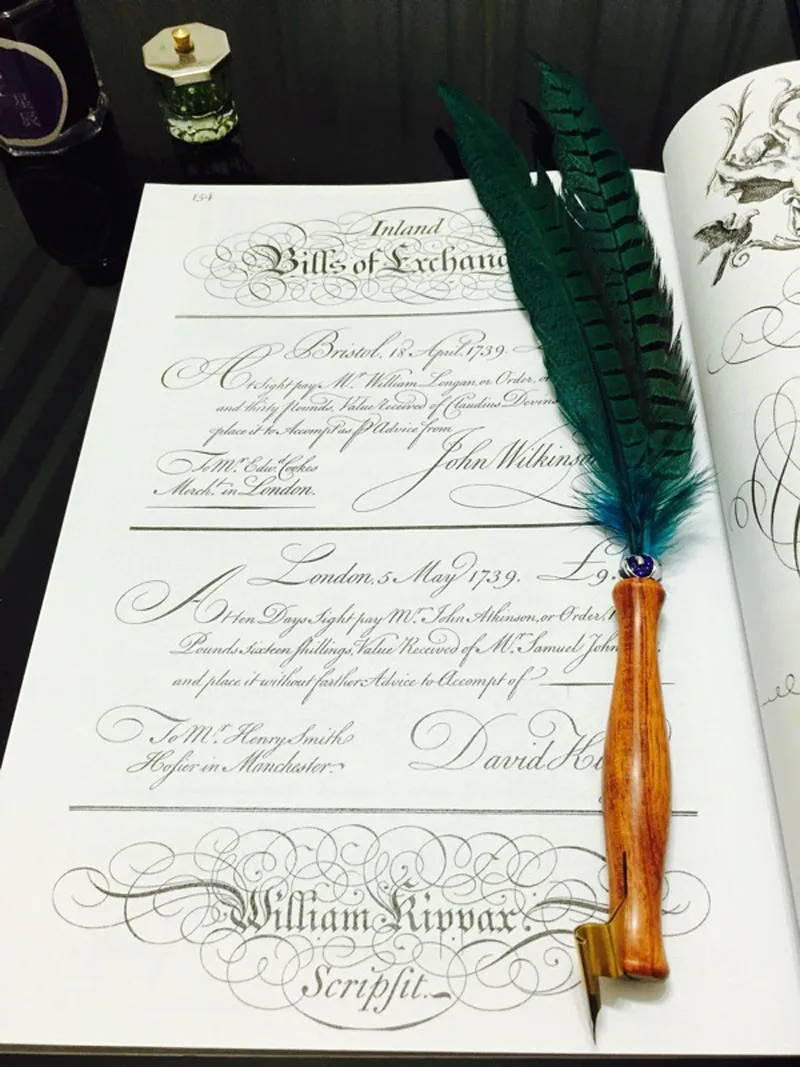 星辰
154
Inland
Bills of Exchanc
Bristol, 18 April, 1739.
At sight pay Mr. William Longan, or Order, or
and thirty Pounds, Value Received of Claudius Devins
place it to Accompt as P Advice from
To Mr. Edwd. Cookes
Mercht. in London.
John Wilkinso
London, 5 May 1739. £9.
At ten Days Sight pay Mr. John Atkinson, or Order,
Pounds sixteen shillings, Value Received of Mr. Samuel John
and place it without farther Advice to Accompt of
To Mr. Henry Smith
Hosier in Manchester.
David K
William Kippax.
Scripsit.